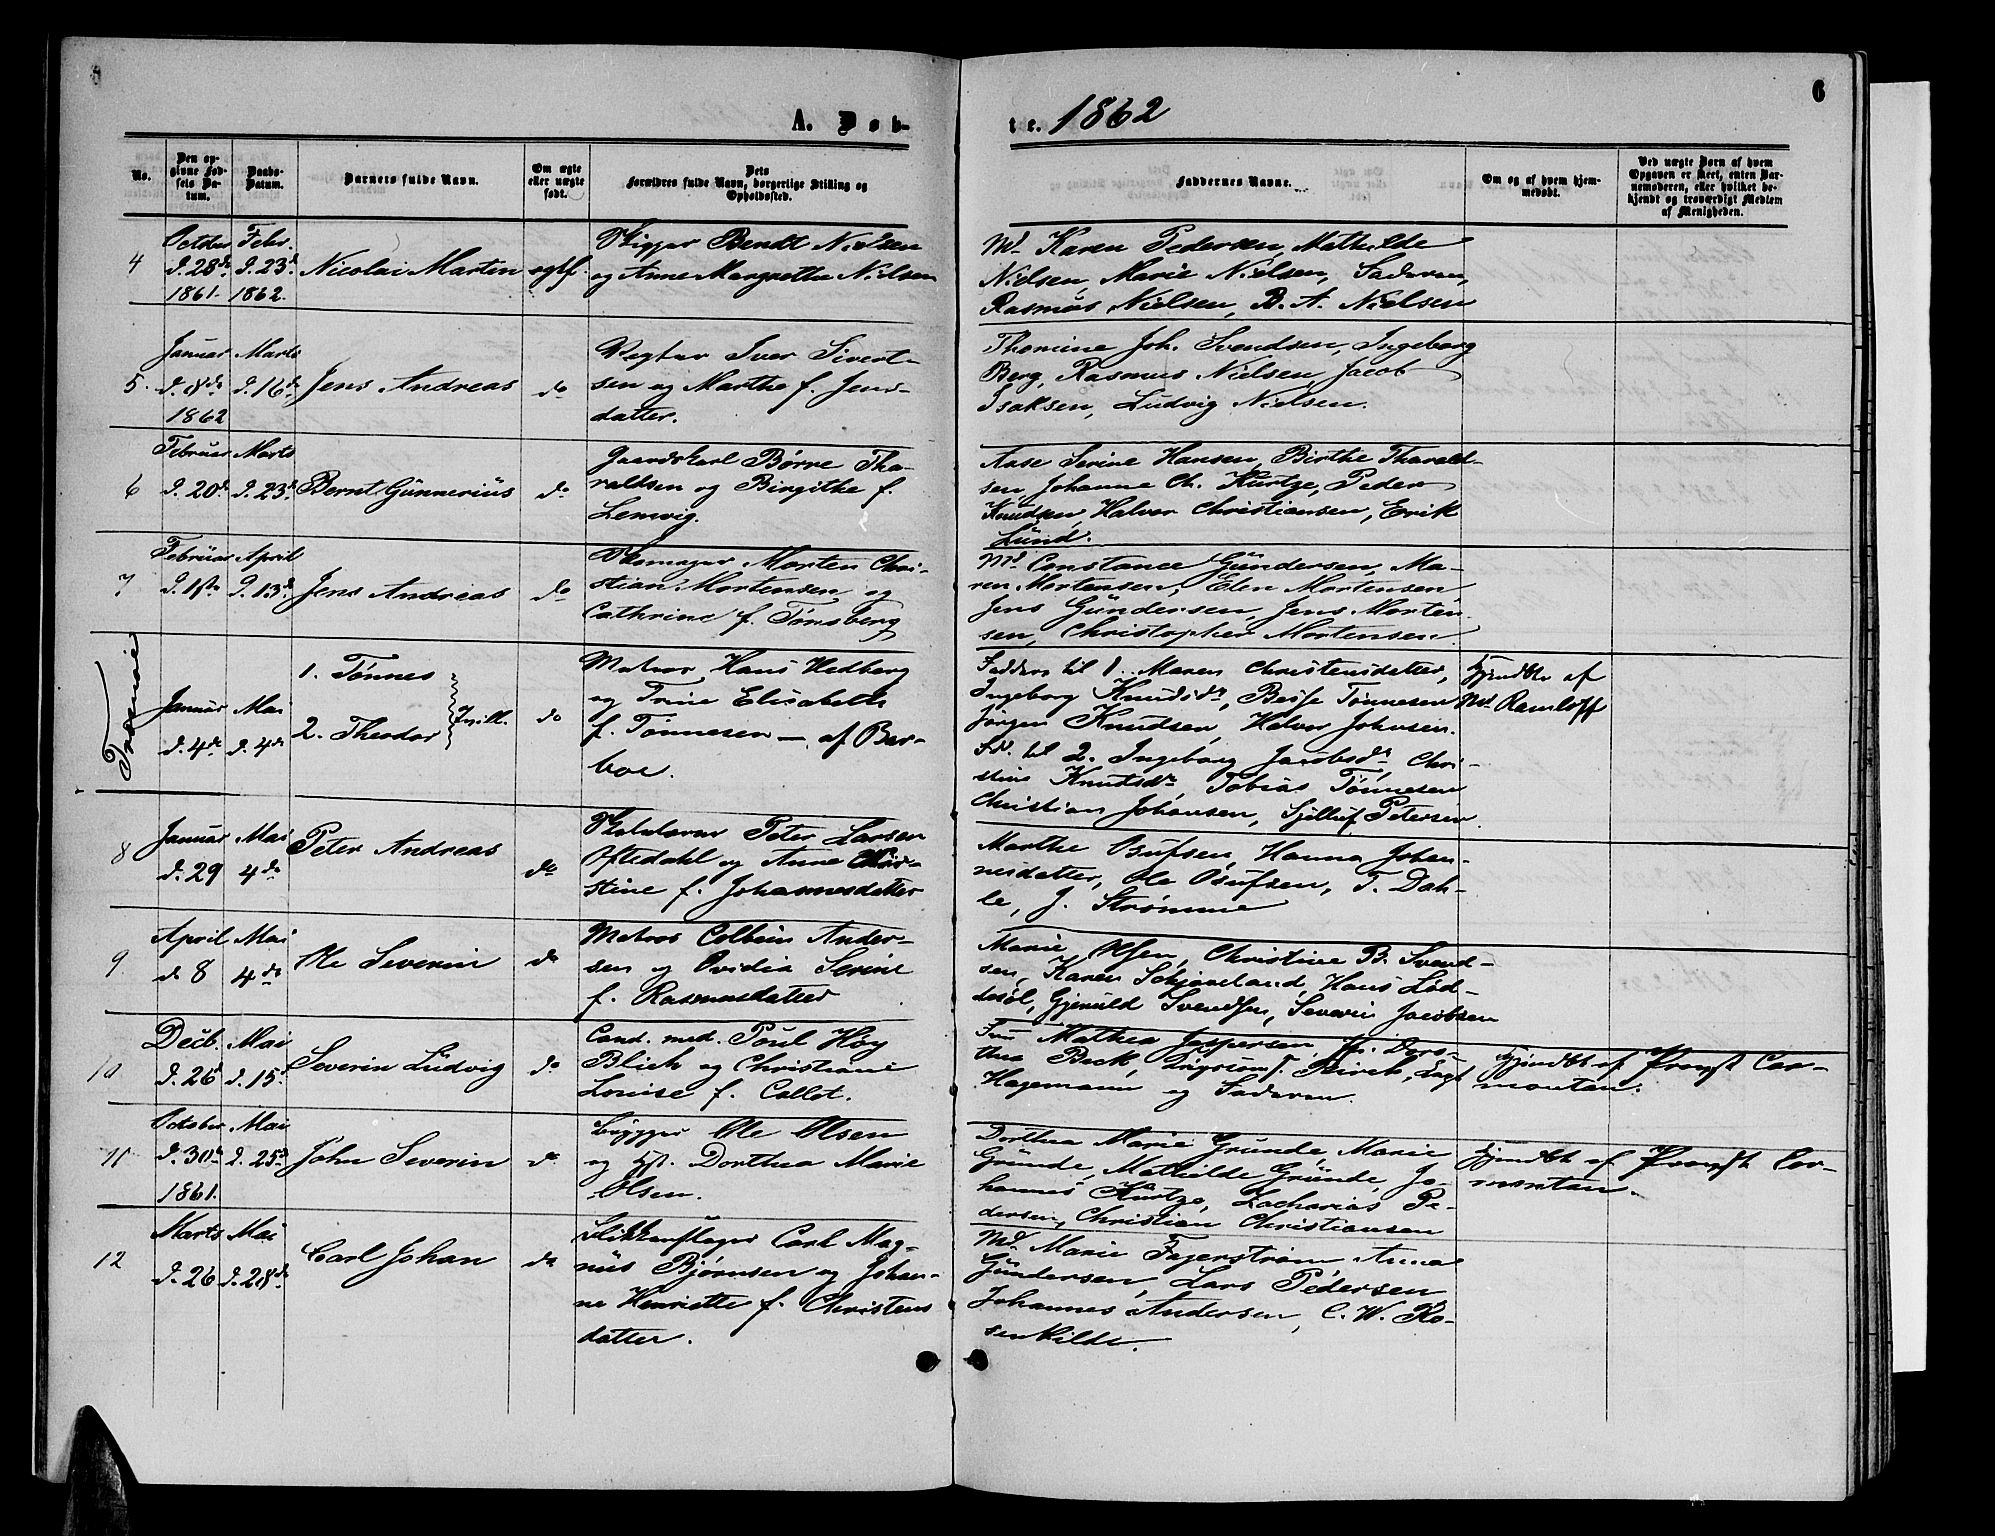 6
A. Døb-
te. 1862
No.
Den op-
givne Fød-
sels Da-
tum.
Daabs-
Datum.
Barnets fulde Navn.
Om ægte
eller uægte
født.
Dets
Forældres fulde Navn, borgerlige Stilling og
Opholdssted.
Faddernes Navne.
Om og af hvem hjem-
medøbt.
Ved uægte Børn af hvem
Opgaven er skeet, enten Bar-
nemoderen, eller hvilket be-
kjendt og troværdigt Medlem
af Menigheden.
4
October
d. 28de
1861.
Febr.
d. 23d
1862.
Nicolai Martin
ægtf.
Skipper Bendt Nielsen
og Anne Margrethe Nielsen
Md. Karen Pedersen, Mathilde
Nielsen, Marie Nielsen, Faderen,
Rasmus Nielsen, B. A. Nielsen
5.
Januar
d. 8de
1862
Marts
d. 16de
Jens Andreas
do
Vegter Iver Sivert-
sen og Marthe f. Jens-
datter.
Thomine Joh. Svendsen, Ingeborg
Berg, Rasmus Nielsen, Jacob
Isaksen, Ludvig Nielsen.
6
Februar
d. 20de
Marts
d. 23d
Bernt Günnerius
do
Gaardskarl Børre Tha-
raldsen og Birgithe f.
Lemvig.
Aase Serine Hansen, Birthe Tharald-
sen, Johanne Ch. Kurtze, Peder
Knudsen, Halvor Christiansen, Erik
Lund.
7
Februar
d. 1ste
April
d. 13de
Jens Andreas
do
Skomager Morten Chri-
stian Mortensen og
Cathrine f. Tønsberg
Md. Constance Gundersen, Ma-
ren Mortensen, Elen Mortensen
Jens Gundersen, Jens Morten
sen, Christopher Mortensen.
Tromøe
Januar
d. 4de
Mai
d. 4de
1. Tønnes
2. Theodor
Tvill.
do
Matros Hans Hedberg
og Trine Elisabeth
f. Tønnesen — af Bar-
boe.
Faddere til 1. Maren Christensdatter,
Ingeborg Knudsdr, Berthe Tønnesen
Jørgen Knudsen, Halvor Johnsen.
Fd. til 2. Ingeborg Jacobsdr Chri-
stine Knutsdr, Tobias Tønnesen
Christian Johansen, Petersen
Hjemdbt af
Md. Ramloff
8
Januar
d. 29
Mai
4de
Peter Andreas
do
Skolelærer Peter Larsen
Oftedahl og Anne Chri-
stine f. Johannesdatter
Marthe Osufsen, Hanna Johan-
nesdatter, Ole Osufsen, T. Dah-
le, J. Strømme
9
April
d. 8
Mai
4de
Ole Severin
do
Matros Colbein Ander-
sen og Ovidia Serine
f. Rasmusdatter
Marie Olsen, Christine B. Svend-
sen, Karen Schjøveland, Hans Lød-
desøl, Gjeruld Svendsen, Severin Jacobsen
10
Decb.
d. 26d
Mai
d. 15.
Severin Ludvig
do
Cand. med. Poul Høy
Blich og Christiane
Louise f. Collet.
Fru Mathea Jespersen, Fr. Doro-
thea Beck, Birch,
Hagemann og Faderen.
Hjemdbt af Provst Cor-
montan.
11
October
d. 30te
1861.
Mai
d. 25d
John Severin
do
Brygger Ole Olsen
og Hst. Dorthea Marie
Olsen.
Dorthea Marie Grunde, Marie
Grunde, Mathilde Grunde, Jo-
hannes Kurtze, Zacharias Pe-
dersen, Christian Christiansen
Hjemdbt af Provst Cor-
montan.
12
Marts
d. 26
Mai
d. 28de
Carl Johan
do
Blikkenslager Carl Mag-
nus Bjørnsen og Johan-
ne Henriette f. Christens
datter.
Md. Marie Fagerstrøm, Anna
Gundersen, Lars Pedersen
Johannes Andersen, C. W. Ro-
senkilde.